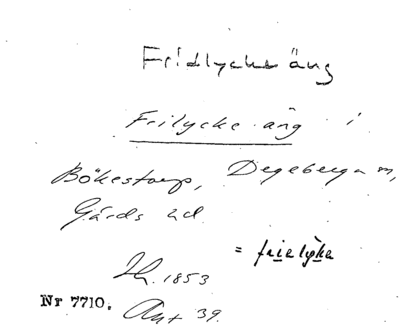 Fridlyckeäng
Frilycke äng i
Bökestorp, Degeberga sn,
Gärds hd
= frielycke
Lh. 1853
Nr 7710. Ant 39.